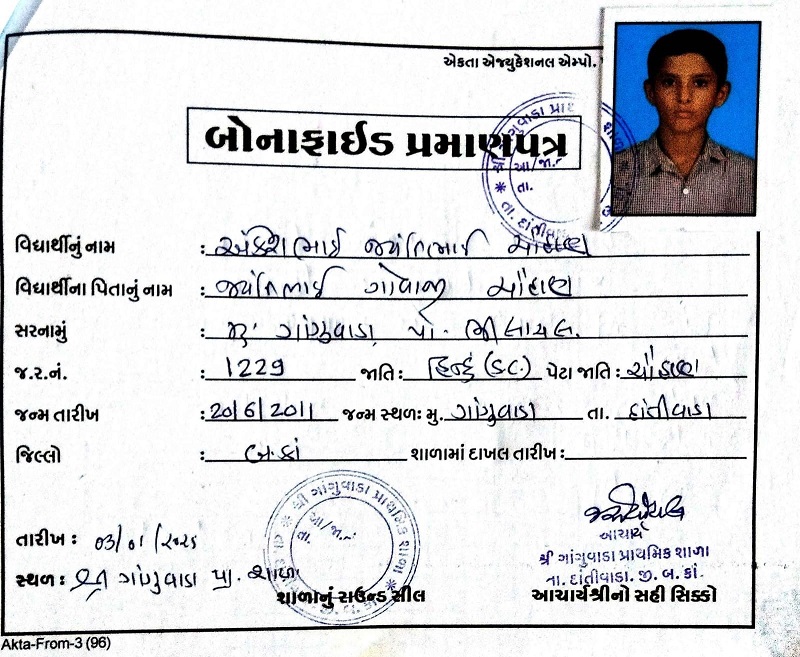 એકતા એજ્યુકેશનલ એમ્પો.
બોનાફાઈડ પ્રમાણપત્ર
વિદ્યાર્થીનું નામ : જયંતિભાઈ ચૌહાણ
વિદ્યાર્થીના પિતાનું નામ : જયંતિભાઈ ગોવાજી ચૌહાણ
સરનામું : મુ. ગાંગુવાડા પો. ભીલાચલ.
જ.ર.નં. : 1229 જાતિ : હિન્દુ (S.C.) પેટા જાતિ : ચૌહાણ
જન્મ તારીખ : 20/6/2011 જન્મ સ્થળઃ મુ. ગાંગુવાડા તા. દાંતીવાડા
જિલ્લો : બ.કાં શાળામાં દાખલ તારીખ :
શ્રી ગાંગુવાડા પ્રાથમિક શાળા
તારીખ : 03/01/૨૦૨૫
આચાર્ય
શ્રી ગાંગુવાડા પ્રાથમિક શાળા
સ્થળ : શ્રી ગાંગુવાડા પ્રા. શાળા
તા. દાંતીવાડા. જી. બ. કાં.
શાળાનું રાઉન્ડ સીલ
આચાર્યશ્રીનો સહી સિક્કો
Akta-From-3 (96)